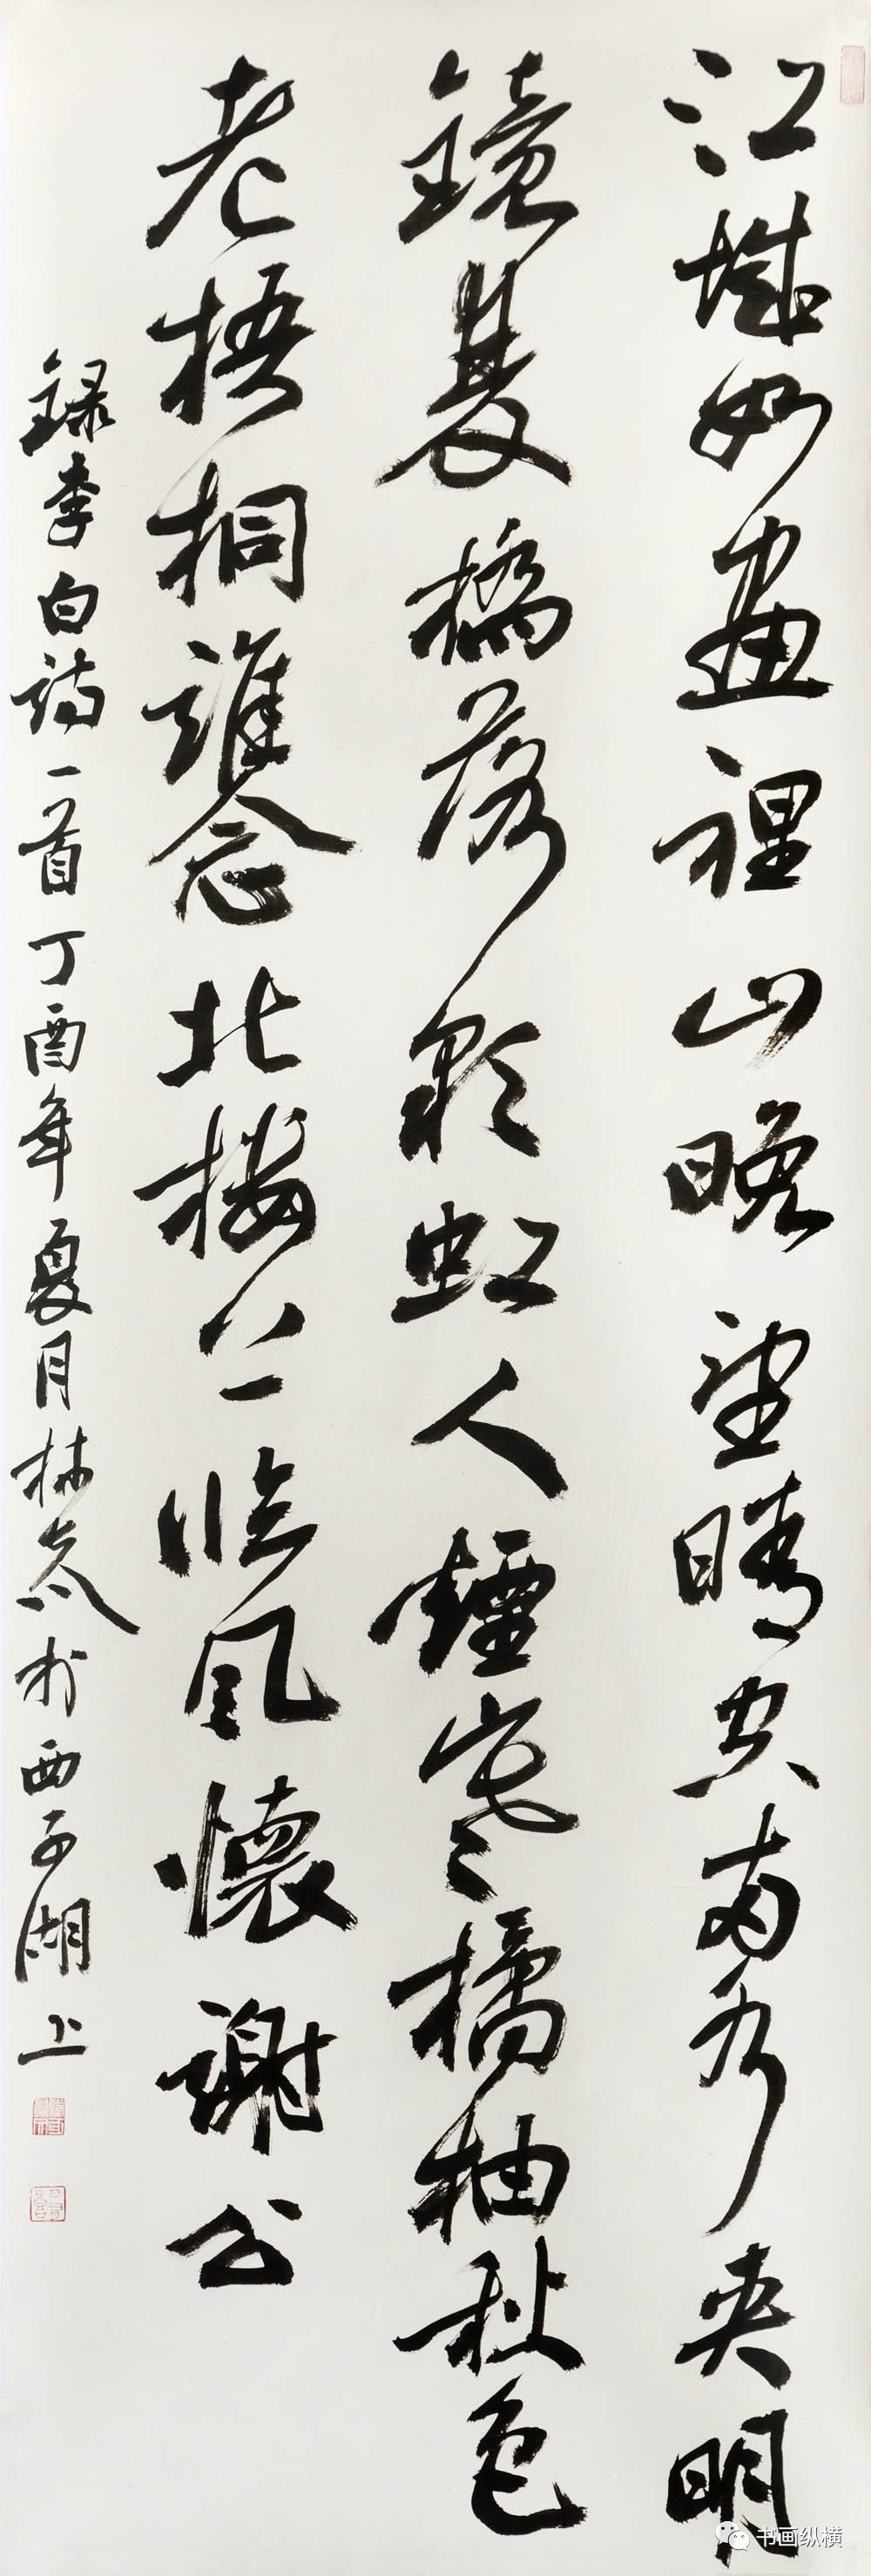 江城如畫裡山晚望晴空兩水夾明
鏡雙橋落彩虹人煙寒橘柚秋色
老梧桐誰念北樓上臨風懷謝公
錄李白詩一首丁酉年夏月林於西子湖上
书画纵横